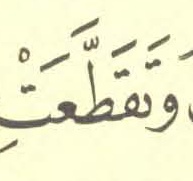 وَتَقَطَّعَتْ